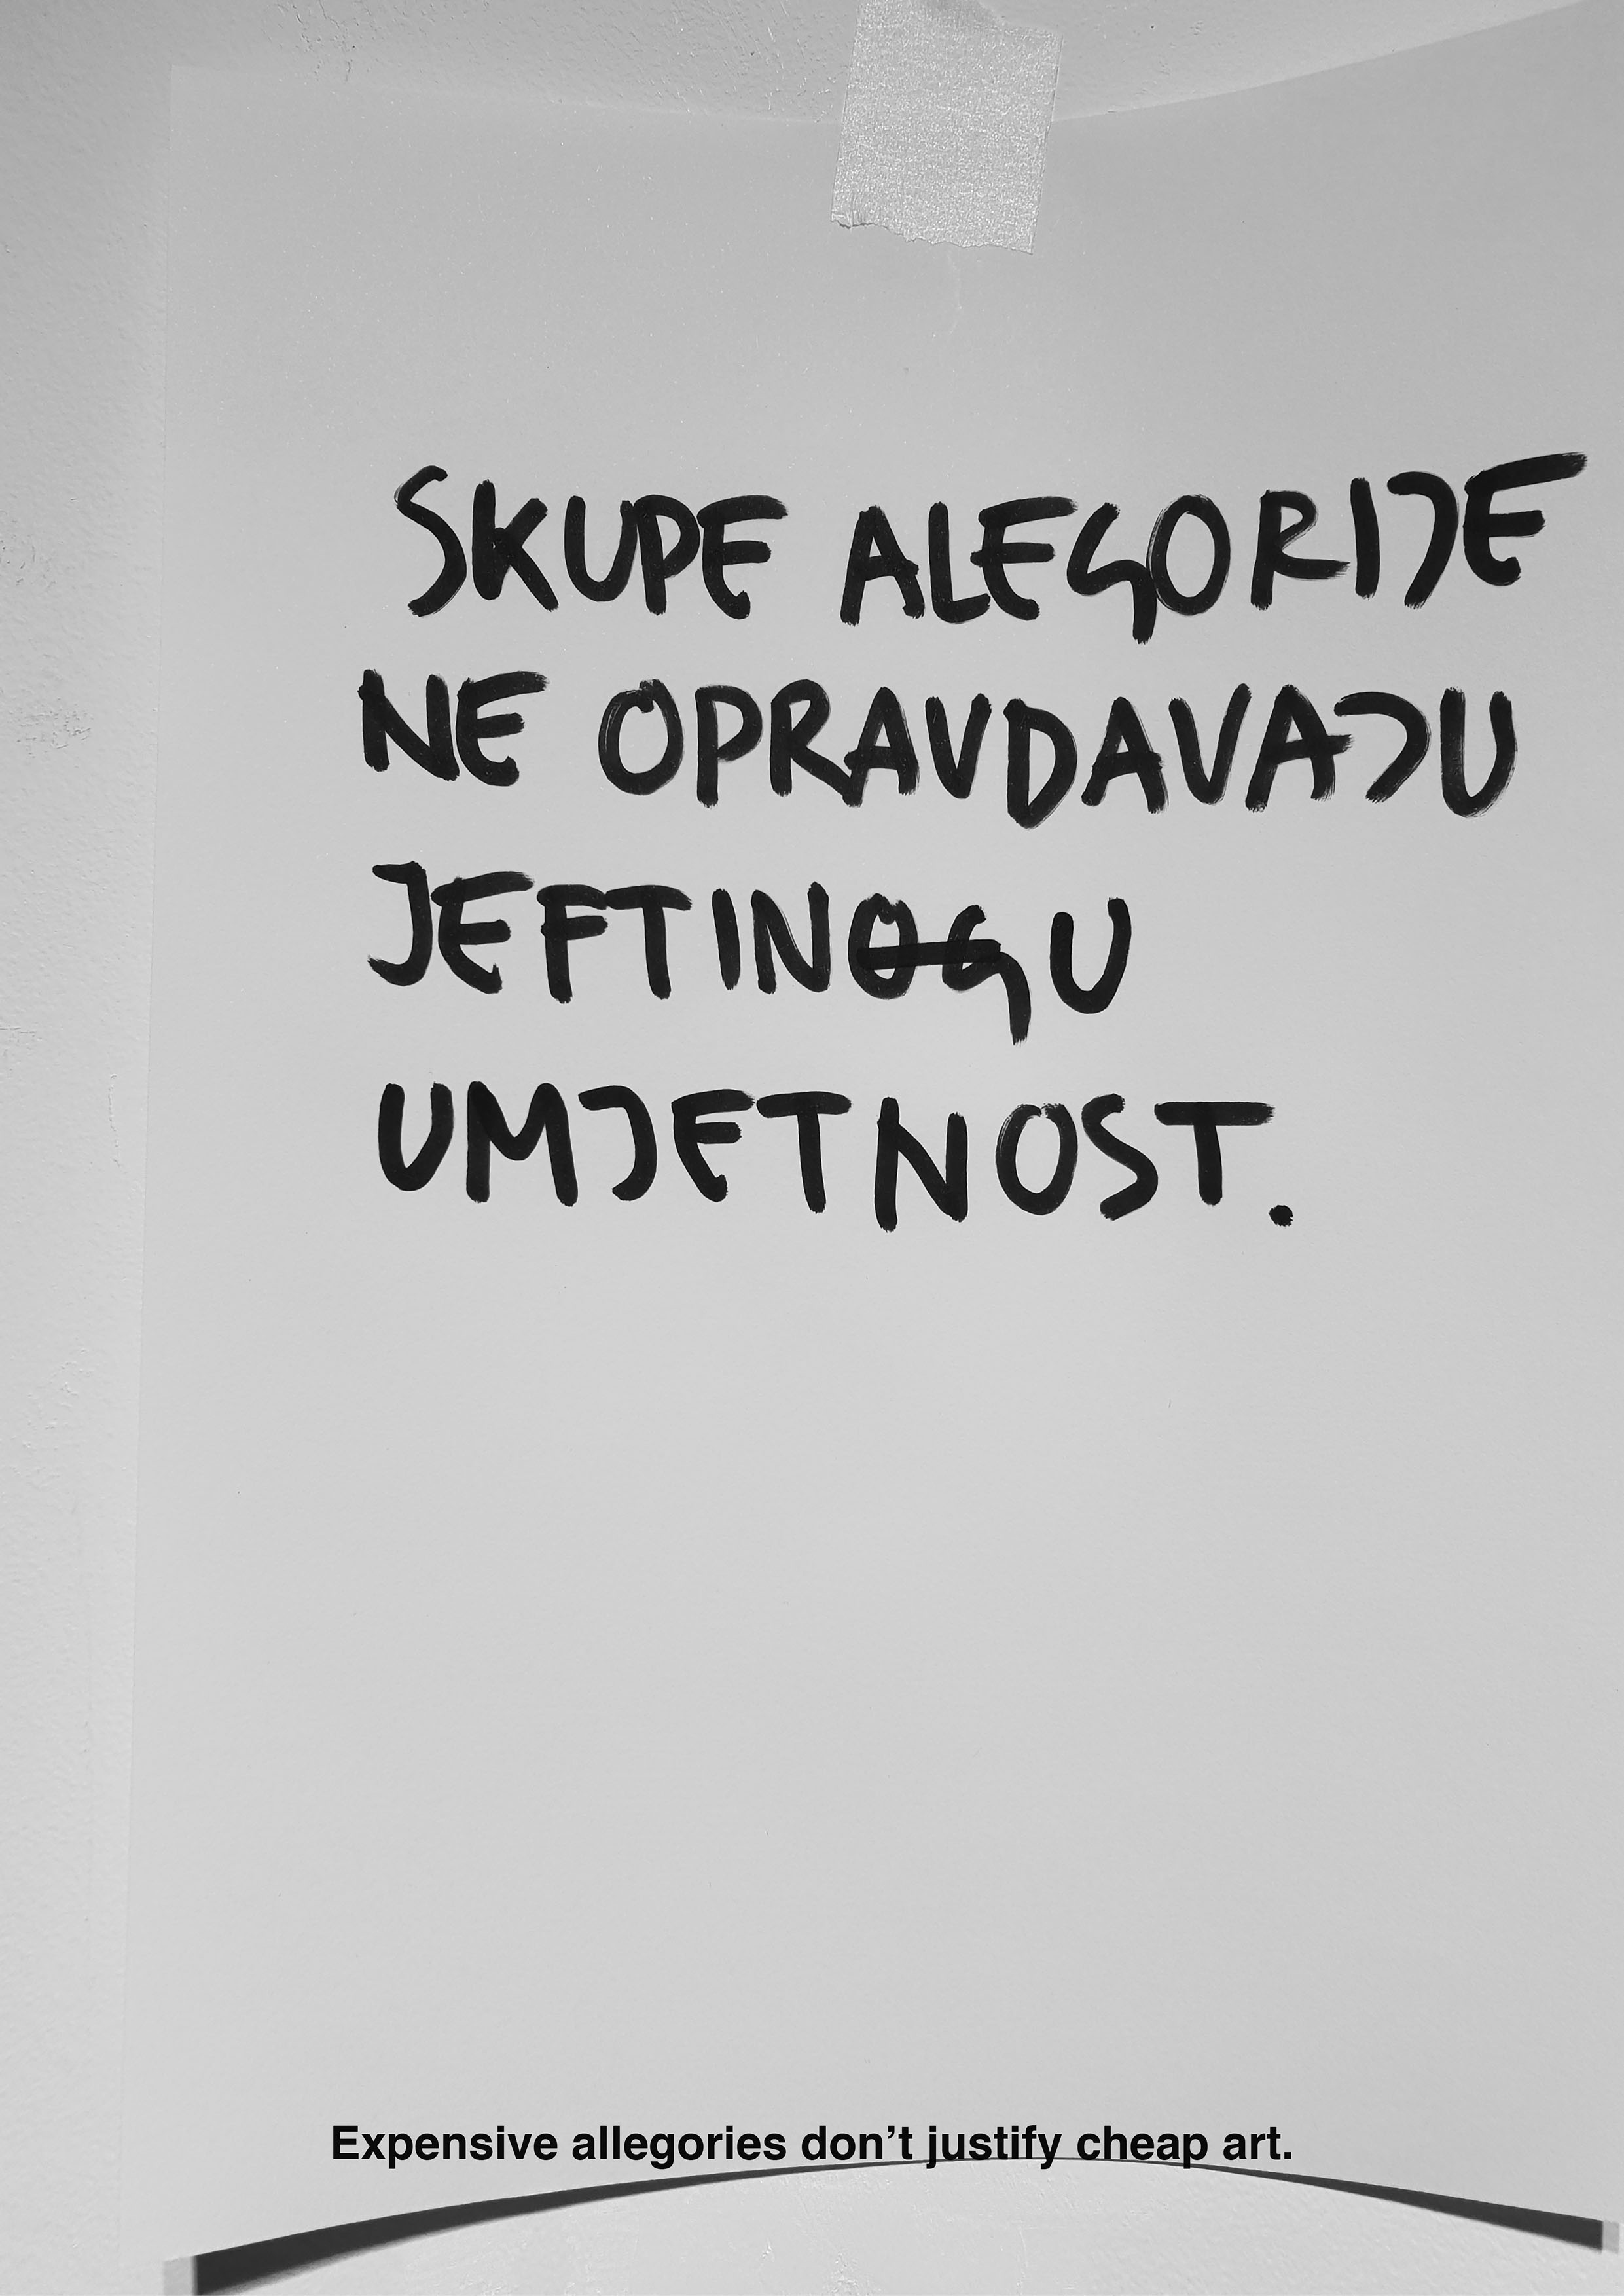 SKUPE ALEGORIJE
NE OPRAVDAVAJU
JEFTINOGU
UMJETNOST.
Expensive allegories don’t justify cheap art.